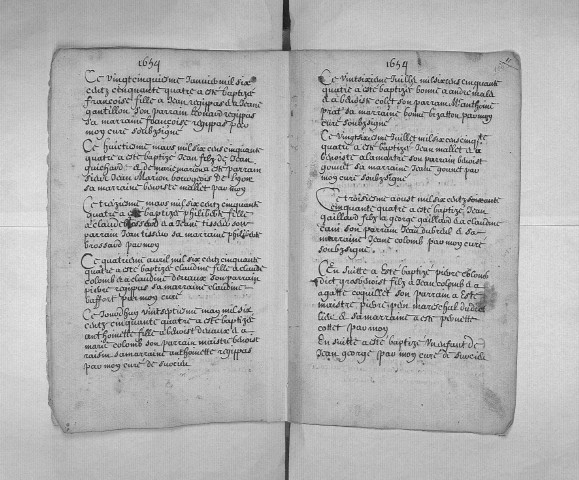 1654
Ce vingtcinquiesme Janvier mil six
centz cinquante quatre a este baptize
francoise fille a Jean regipas & a Jeane
gantillon son parrain
sa marraine francoise regipas par
moy curé soubzsigne
Ce huictiesme mars mil six cens cinquante
quatre a este baptize Jean filz de Jean
guichard & de marie marion a este parrain
Jean Marion bourgeois de lyon
sa marraine benoiste mallet par moy
Ce treiziesme mars mil six centz cinquante
quatre a este baptize philiberte fille
a claude brossard & a Jeane tisseur son
parrain Jean tisseur sa marraine philiberte
brossard par moy
Ce quatriesme avril mil six centz cinquante
quatre a este baptize claudine fille a claude
colomb & a claudine devaux son parrain
pierre regipas sa marraine claudine
par moy curé
Ce Jourdhuy vintseptiesme may mil six
centz cinquante quatre a este baptize
anthoinette fille a benoist devaux & a
marie colomb son parrain maistre benoist
sa marraine anthoinette regipas
par moy curé de
1654
11
Ce vintsixiesme Juillet mil six cens cinquante
quatre a este baptize bonne a andre
& a benoiste colet son parrain Mr anthoine
prat sa marraine bonne par moy
curé soubzsigne
Ce vingtsixiesme Juillet mil six cens cinqte
quatre a este baptize Jean mallet & a
benoiste alamartre son parrain benoist
gonnet sa marraine Jeane gonnet par
moy curé soubzsigne
Ce troisiesme aoust mil six centz
cinquante quatre a este baptize Jean
gaillard filz a george gaillard & a claudine
son parrain Jean dubreul & sa
marraine Jeane colomb par moy curé
soubzsigne
En suitte a este baptize pierre colomb
dict grosbenoist filz a Jean colomb & a
agatte coquillet son parrain a este
maistre pierre mareschal
& sa marraine a este pernette
collet par moy
En suitte a este baptize un enfant de
Jean george par moy curé de